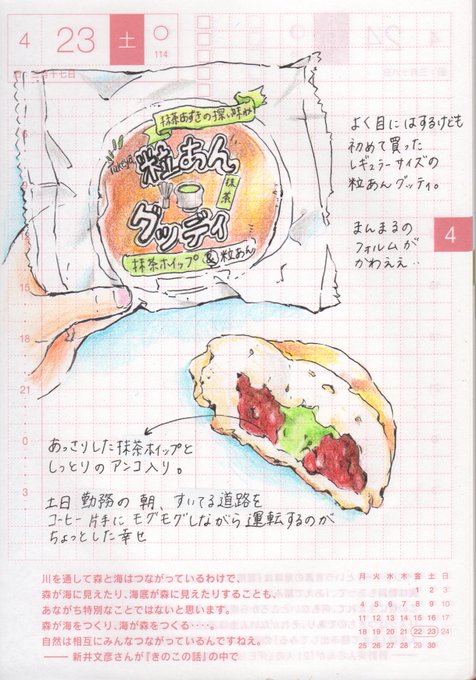 4 23 土 ○
114
十七日
抹茶あずきの深い味わい
Takeya
粒あん
グッディ
抹茶
抹茶ホイップ & 粒あん
よく目にはするけども
初めて買った
レギュラーサイズの
粒あんグッディ。
まんまるの
フォルムが
かわええ‥
4
15
18
21
0
3
あっさりした抹茶ホイップと
しっとりのアンコ入り。
土日 勤務の朝、すいてる道路を
コーヒー片手に モグモグしながら 運転するのが
ちょっとした幸せ
川を通して森と海はつながっているわけで、
森が海に見えたり、海底が森に見えたりすることも、
あながち特別なことではないと思います。
森が海をつくり、海が森をつくる‥‥。
自然は相互にみんなつながっているんですねえ。
―― 新井文彦さんが『きのこの話』の中で
月 火 水 木 金 土 日
1 2 3
4 5 6 7 8 9 10
11 12 13 14 15 16 17
18 19 20 21 22 23 24
25 26 27 28 29 30